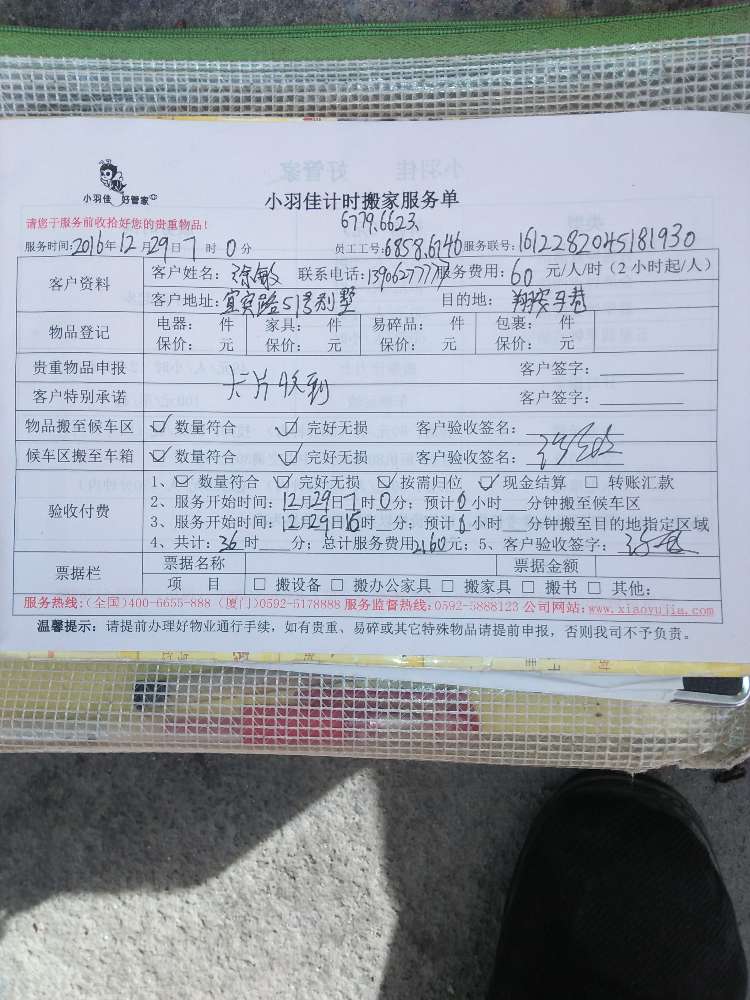 小羽佳 好管家
小羽佳计时搬家服务单
请您于服务前收拾好您的贵重物品!
6779.6623.
服务时间:2016年12月29日7时0分 员工工号:6858.6146 服务联号:1612282045181930
客户资料
客户姓名: 徐敏 联系电话:13906277777 服务费用:60元/人/时(2小时起/人)
客户地址:宜宾路51号别墅 目的地: 翔安马巷
物品登记
电器: 件 家具: 件 易碎品: 件 包裹: 件
保价: 元 保价: 元 保价: 元 保价: 元
贵重物品申报 客户签字:
客户特别承诺 客户签字:
卡片收到
物品搬至候车区 ☑ 数量符合 ☑ 完好无损 客户验收签名:
候车区搬至车箱 ☑ 数量符合 ☑ 完好无损 客户验收签名:
验收付费
1、☑ 数量符合 ☑ 完好无损 ☑ 按需归位 ☑ 现金结算 □ 转账汇款
2、服务开始时间:12月29日7时0分;预计0小时 分钟搬至候车区
3、服务开始时间:12月29日16时 分;预计1小时 分钟搬至目的地指定区域
4、共计:36时 分;总计服务费用2160元;5、客户验收签字:
票据栏
票据名称 票据金额
项 目 □ 搬设备 □ 搬办公家具 □ 搬家具 □ 搬书 □ 其他:
服务热线:(全国)400-6655-888 (厦门)0592-5178888 服务监督热线:0592-5888123 公司网站:www.xiaoyujia.com
温馨提示:请提前办理好物业通行手续,如有贵重、易碎或其它特殊物品请提前申报,否则我司不予负责。